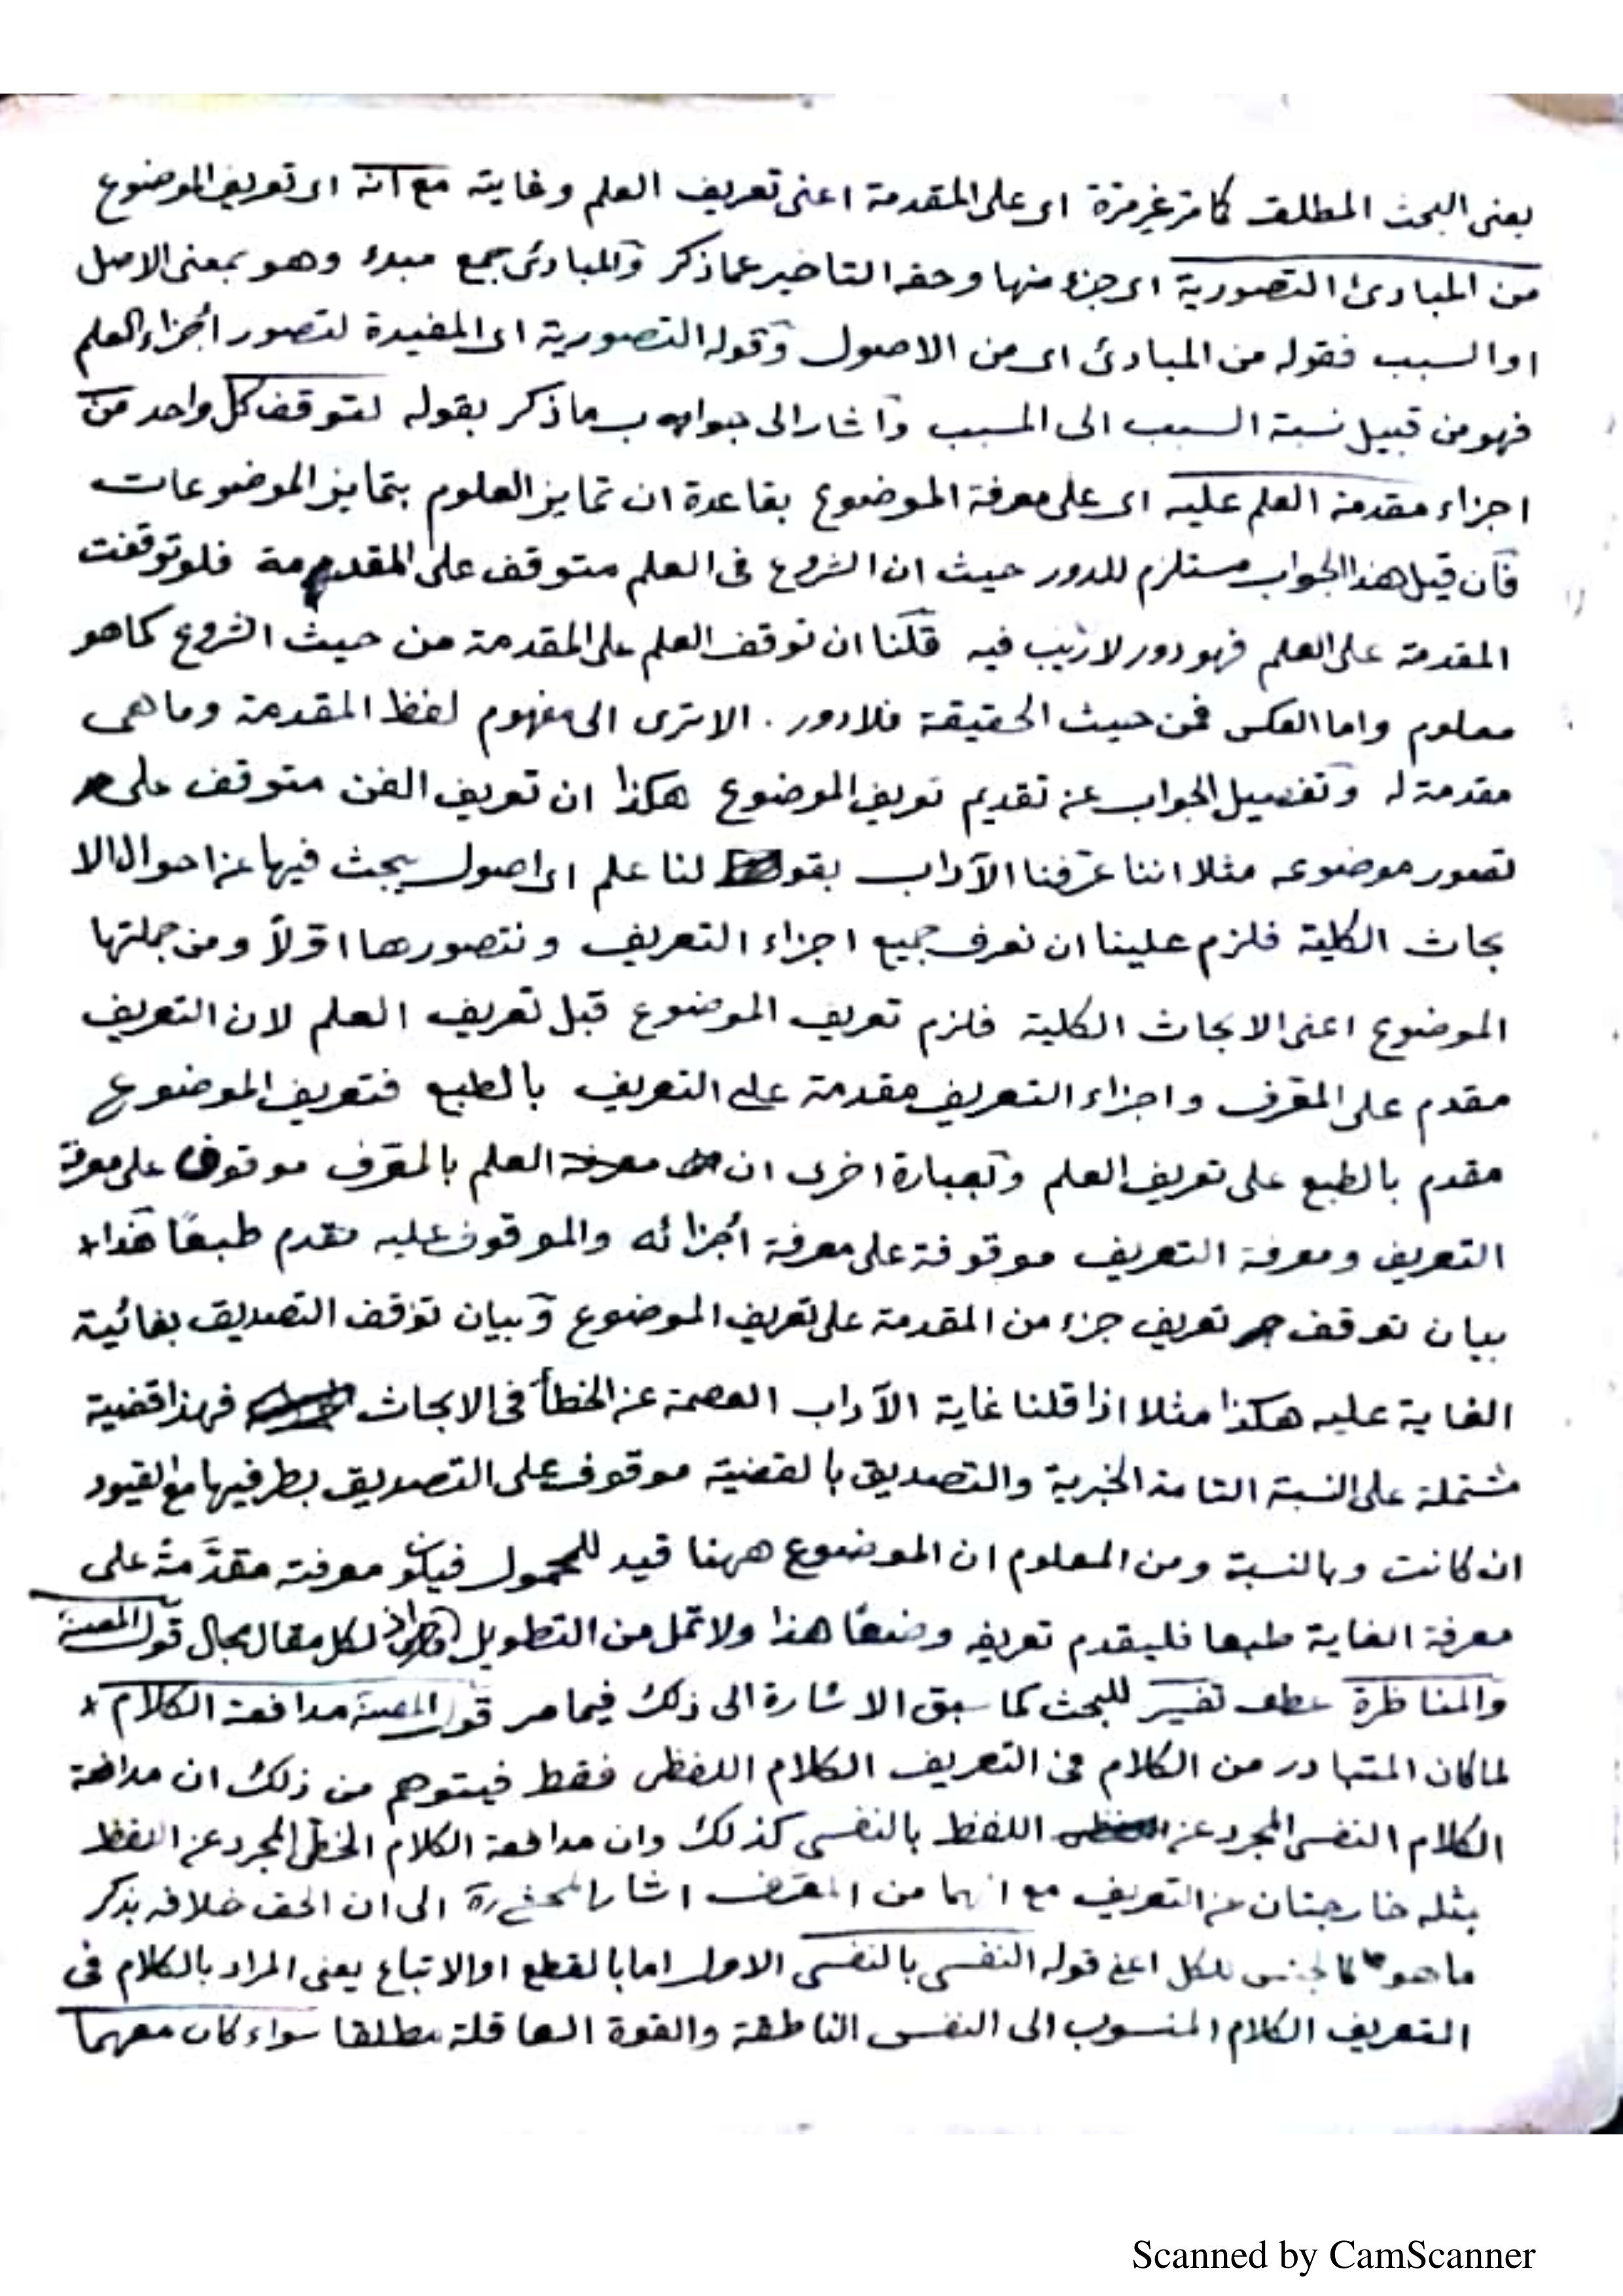 يعنى البحث المطلق كما مر غير مرة اى على المقدمة اعنى تعريف العلم وغايته مع انه اى تعريف الموضوع
من المبادئ التصورية اى جزء منها وحقه التاخير عما ذكر والمبادئ جمع مبدء وهو بمعنى الاصل
او السبب فقوله من المبادئ اى من الاصول وقوله التصورية اى المفيدة لتصور أجزاء العلم
فهو من قبيل نسبة السبب الى المسبب واشار الى جوابه ما ذكر بقوله لتوقف كل واحد من
اجزاء مقدمة العلم عليه اى على معرفة الموضوع بقاعدة ان تمايز العلوم بتمايز الموضوعات
فان قيل هذا الجواب مستلزم للدور حيث ان الشروع فى العلم متوقف على المقدمة فلو توقفت
المقدمة على العلم فهو دور لا ريب فيه قلنا ان توقف العلم على المقدمة من حيث الشروع كما هو
معلوم واما العكس فمن حيث الحقيقة فلا دور . الا ترى الى مفهوم لفظ المقدمة وما هى
مقدمة له وتفصيل الجواب عن تقديم تعريف الموضوع هكذا ان تعريف الفن متوقف على
تصور موضوعه مثلا اننا عرّفنا الآداب بقولنا علم اى اصول يبحث فيها عن احوال الا
بحاث الكلية فلزم علينا ان نعرف جميع اجزاء التعريف ونتصورها اولاً ومن جملتها
الموضوع اعنى الابحاث الكلية فلزم تعريف الموضوع قبل تعريف العلم لان التعريف
مقدم على المعرف واجزاء التعريف مقدمة على التعريف بالطبع فتعريف الموضوع
مقدم بالطبع على تعريف العلم وبعبارة اخرى ان العلم بالمعرف موقوف على معرفة
التعريف ومعرفة التعريف موقوفة على معرفة أجزائه والموقوف عليه مقدم طبعًا هذا
بيان توقف تعريف جزء من المقدمة على تعريف الموضوع وبيان توقف التصديق بغائية
الغاية عليه هكذا مثلا اذا قلنا غاية الآداب العصمة عن الخطأ فى الابحاث فهذا قضية
مشتملة على النسبة التامة الخبرية والتصديق بالقضية موقوف على التصديق بطرفيها مع القيود
ان كانت وبالنسبة ومن المعلوم ان الموضوع ههنا قيد للمحمول فيكون معرفته مقدَّمة على
معرفة الغاية طبعا فليقدم تعريفه وضعًا هذا ولا تمل من التطويل اذ لكل مقال مجال قول المصنف
والمناظرة عطف تفسير للبحث كما سبق الاشارة الى ذلك فيما مر قول المصنف مدافعة الكلام
لما كان المتبادر من الكلام فى التعريف الكلام اللفظى فقط فيتوهم من ذلك ان مدافعة
الكلام النفسى المجرد عن اللفظ بالنفسى كذلك وان مدافعة الكلام الخطى المجرد عن اللفظ
بمثله خارجتان عن التعريف مع انهما من المعرف اشار الى ان الحق خلافه بذكر
ما هو كالجنس للكل اعنى قوله النفسى بالنفسى الاول اما بالقطع او الاتباع يعنى المراد بالكلام فى
التعريف الكلام المنسوب الى النفس الناطقة والقوة العاقلة مطلقا سواء كان معهما
Scanned by CamScanner